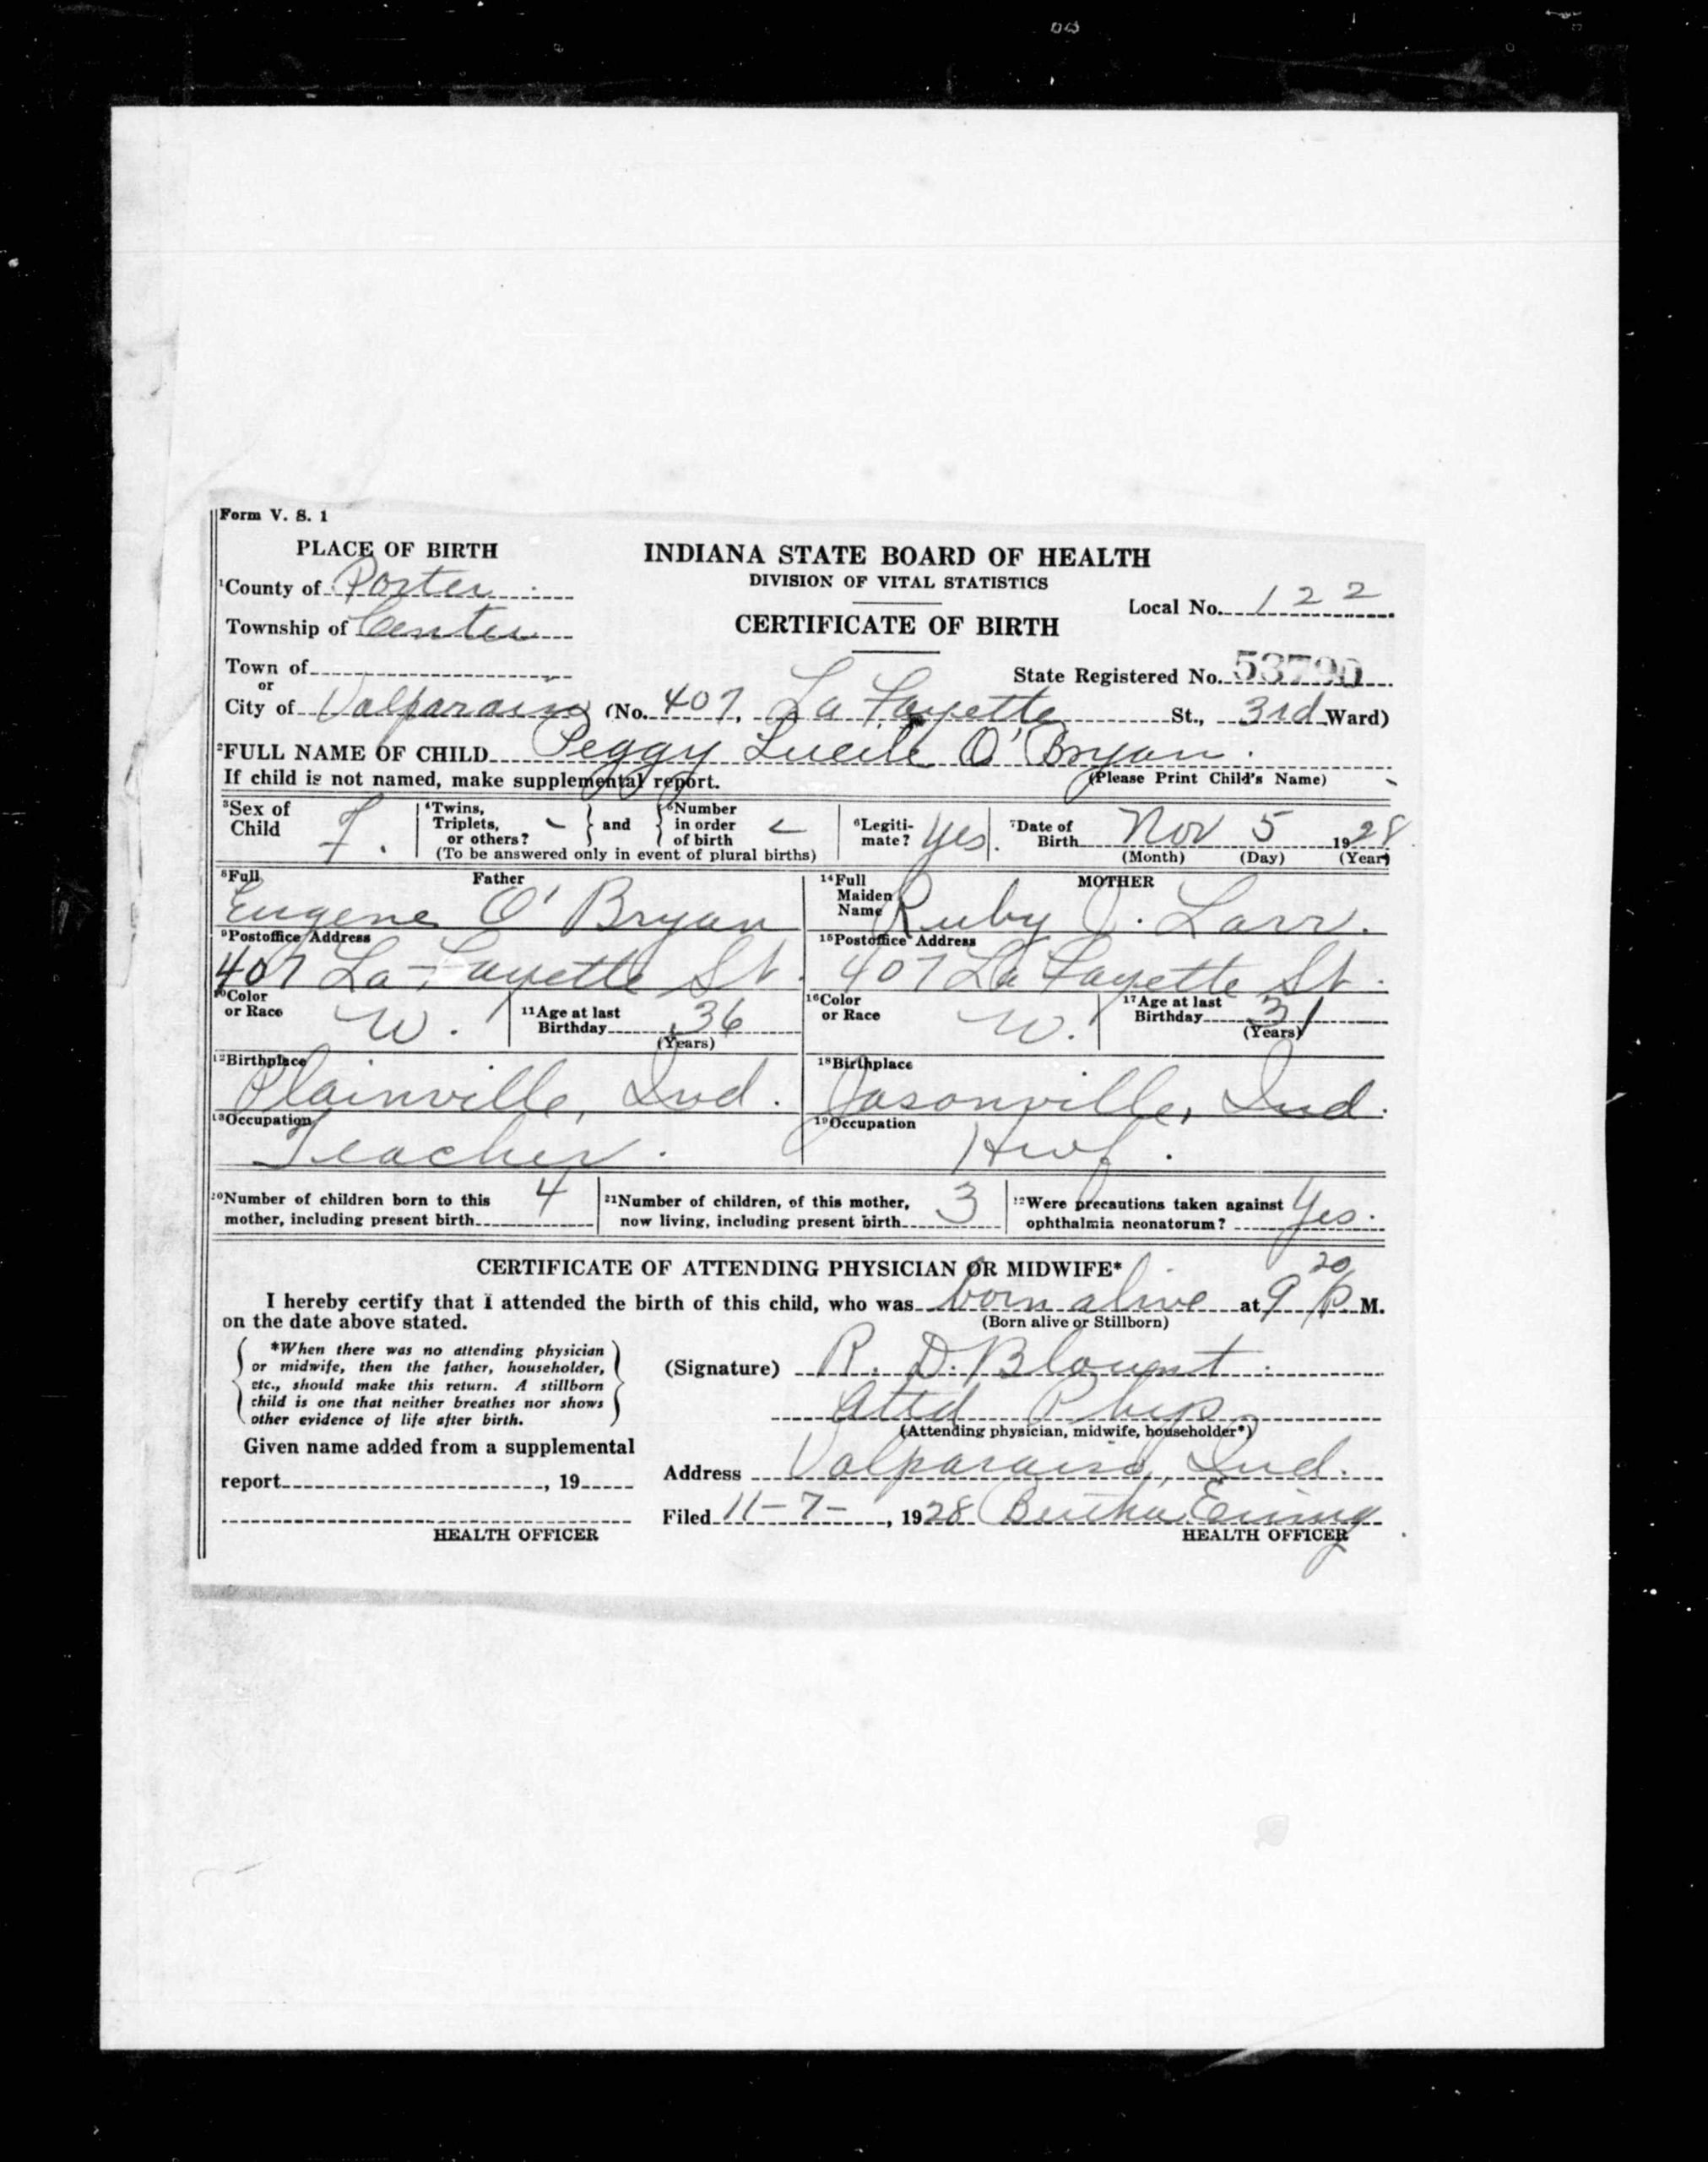 Form V. S. 1
PLACE OF BIRTH
INDIANA STATE BOARD OF HEALTH
DIVISION OF VITAL STATISTICS
¹County of Porter
Local No. 122
Township of Center
CERTIFICATE OF BIRTH
Town of
or
State Registered No. 53790
City of Valparaiso (No. 407, La Fayette St., 3rd Ward)
²FULL NAME OF CHILD Peggy Lucile O'Bryan.
If child is not named, make supplemental report. (Please Print Child's Name)
³Sex of Child F.
⁴Twins, Triplets, or others? - and ⁵Number in order of birth -
(To be answered only in event of plural births)
⁶Legitimate? yes.
⁷Date of Birth Nov 5 1928
(Month) (Day) (Year)
⁸Full Father
Eugene O'Bryan
¹⁴Full Maiden Name MOTHER
Ruby J. Larr.
⁹Postoffice Address
407 La-Fayette St.
¹⁵Postoffice Address
407 La Fayette St.
¹⁰Color or Race W.
¹¹Age at last Birthday 36
(Years)
¹⁶Color or Race W.
¹⁷Age at last Birthday 31
(Years)
¹²Birthplace
Plainville, Ind.
¹⁸Birthplace
Jasonville, Ind.
¹³Occupation
Teacher.
¹⁹Occupation
Hwf.
²⁰Number of children born to this mother, including present birth 4
²¹Number of children, of this mother, now living, including present birth 3
²²Were precautions taken against ophthalmia neonatorum? Yes.
CERTIFICATE OF ATTENDING PHYSICIAN OR MIDWIFE*
I hereby certify that I attended the birth of this child, who was born alive at 9 20 P M.
on the date above stated. (Born alive or Stillborn)
*When there was no attending physician
or midwife, then the father, householder,
etc., should make this return. A stillborn
child is one that neither breathes nor shows
other evidence of life after birth.
(Signature) R. D. Blount.
Attd Phys
(Attending physician, midwife, householder*)
Given name added from a supplemental
report , 19
Address Valparaiso, Ind.
Filed 11-7-, 1928 Bertha Ewing
HEALTH OFFICER
HEALTH OFFICER